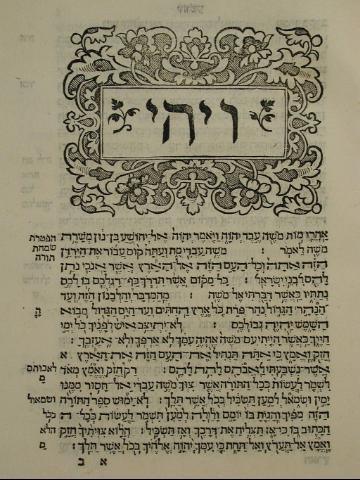 ויהי
אחרי מות משה עבד יהוה ויאמר יהוה אל־יהושע בן־נון משרת הפטרת
משה לאמר : משה עבדי מת ועתה קום עבר את־הירדן שמחת
הזה אתה וכל־העם הזה אל־הארץ אשר אנכי נתן תורה
להם לבני ישראל : כל־מקום אשר תדרך כף־רגלכם בו לכם
נתתיו כאשר דברתי אל־משה : מהמדבר והלבנון הזה ועד
הנהר הגדול נהר־פרת כל ארץ החתים ועד־הים הגדול מבוא
השמש יהיה גבולכם : לא־יתיצב איש לפניך כל ימי
חייך כאשר הייתי עם־משה אהיה עמך לא ארפך ולא אעזבך :
חזק ואמץ כי אתה תנחיל את־העם הזה את־הארץ
אשר־נשבעתי לאבותם לתת להם : רק חזק ואמץ מאד
לשמר לעשות ככל־התורה אשר צוך משה עבדי אל־תסור ממנו
ימין ושמאול למען תשכיל בכל אשר תלך : לא־ימוש ספר התורה ושמאול
הזה מפיך והגית בו יומם ולילה למען תשמר לעשות ככל־ ככל
הכתוב בו כי־אז תצליח את־דרכך ואז תשכיל : הלוא צויתיך חזק הלא
ואמץ אל־תערץ ואל־תחת כי עמך יהוה אלהיך בכל אשר תלך :
א ב